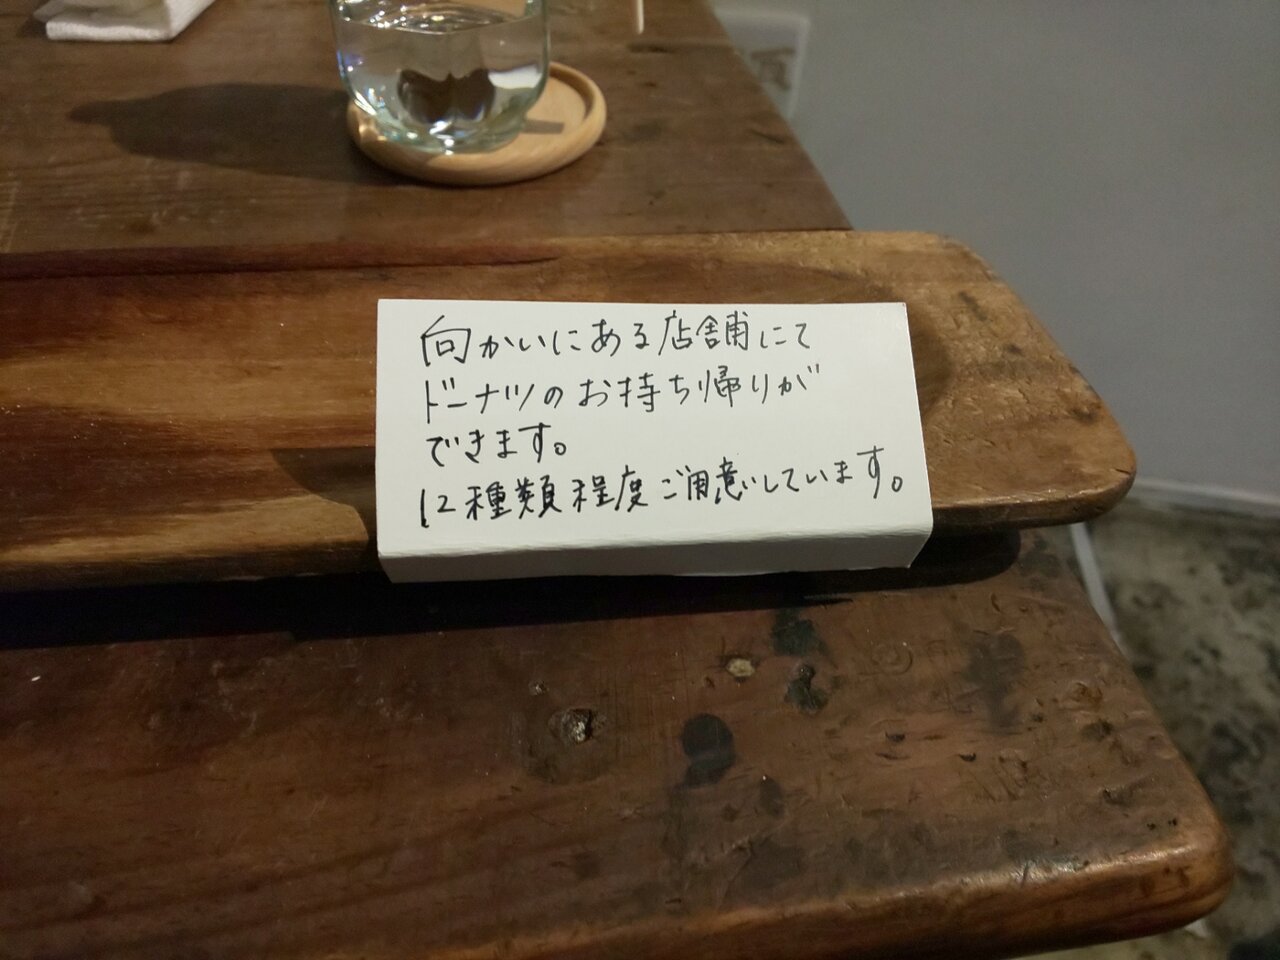 向かいにある店舗にて
ドーナツのお持ち帰りが
できます。
12種類程度ご用意しています。